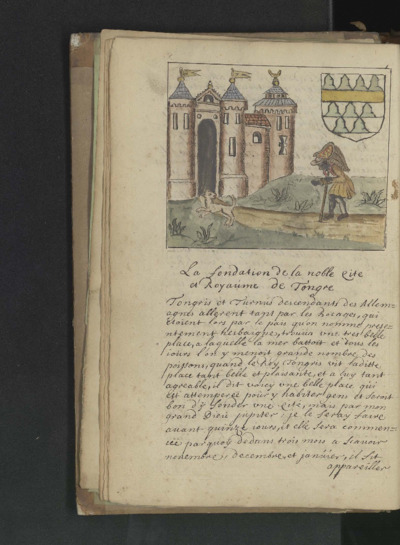 La fondation de la noble Cite
et Royaume de Tongre
Tongris et Turnus descendants des Allem-
agnes allerent tant par les Bocages, qui
etoient lors par le pau qu'on nomme prese-
ntement Hesbaigne, trouva une tres belle
place, a laquelle la mer battoit et tous les
iours l'on y menoit grande nombre des
poissons, quand le Roy Tongris vit laditte
place tant belle et plaisante, et a luy tant
agreable, il dit voicy une belle place qui
est attemperee pour y habiter gens et seroit
bon d'y fonder une cite, mais par mon
grand Dieu jupiter je le feray faire
avant quinze iours, et elle sera commen-
cee parquoy dedans trois mois a scavoir
novembre, decembre, et janvier, il fit
appareiller